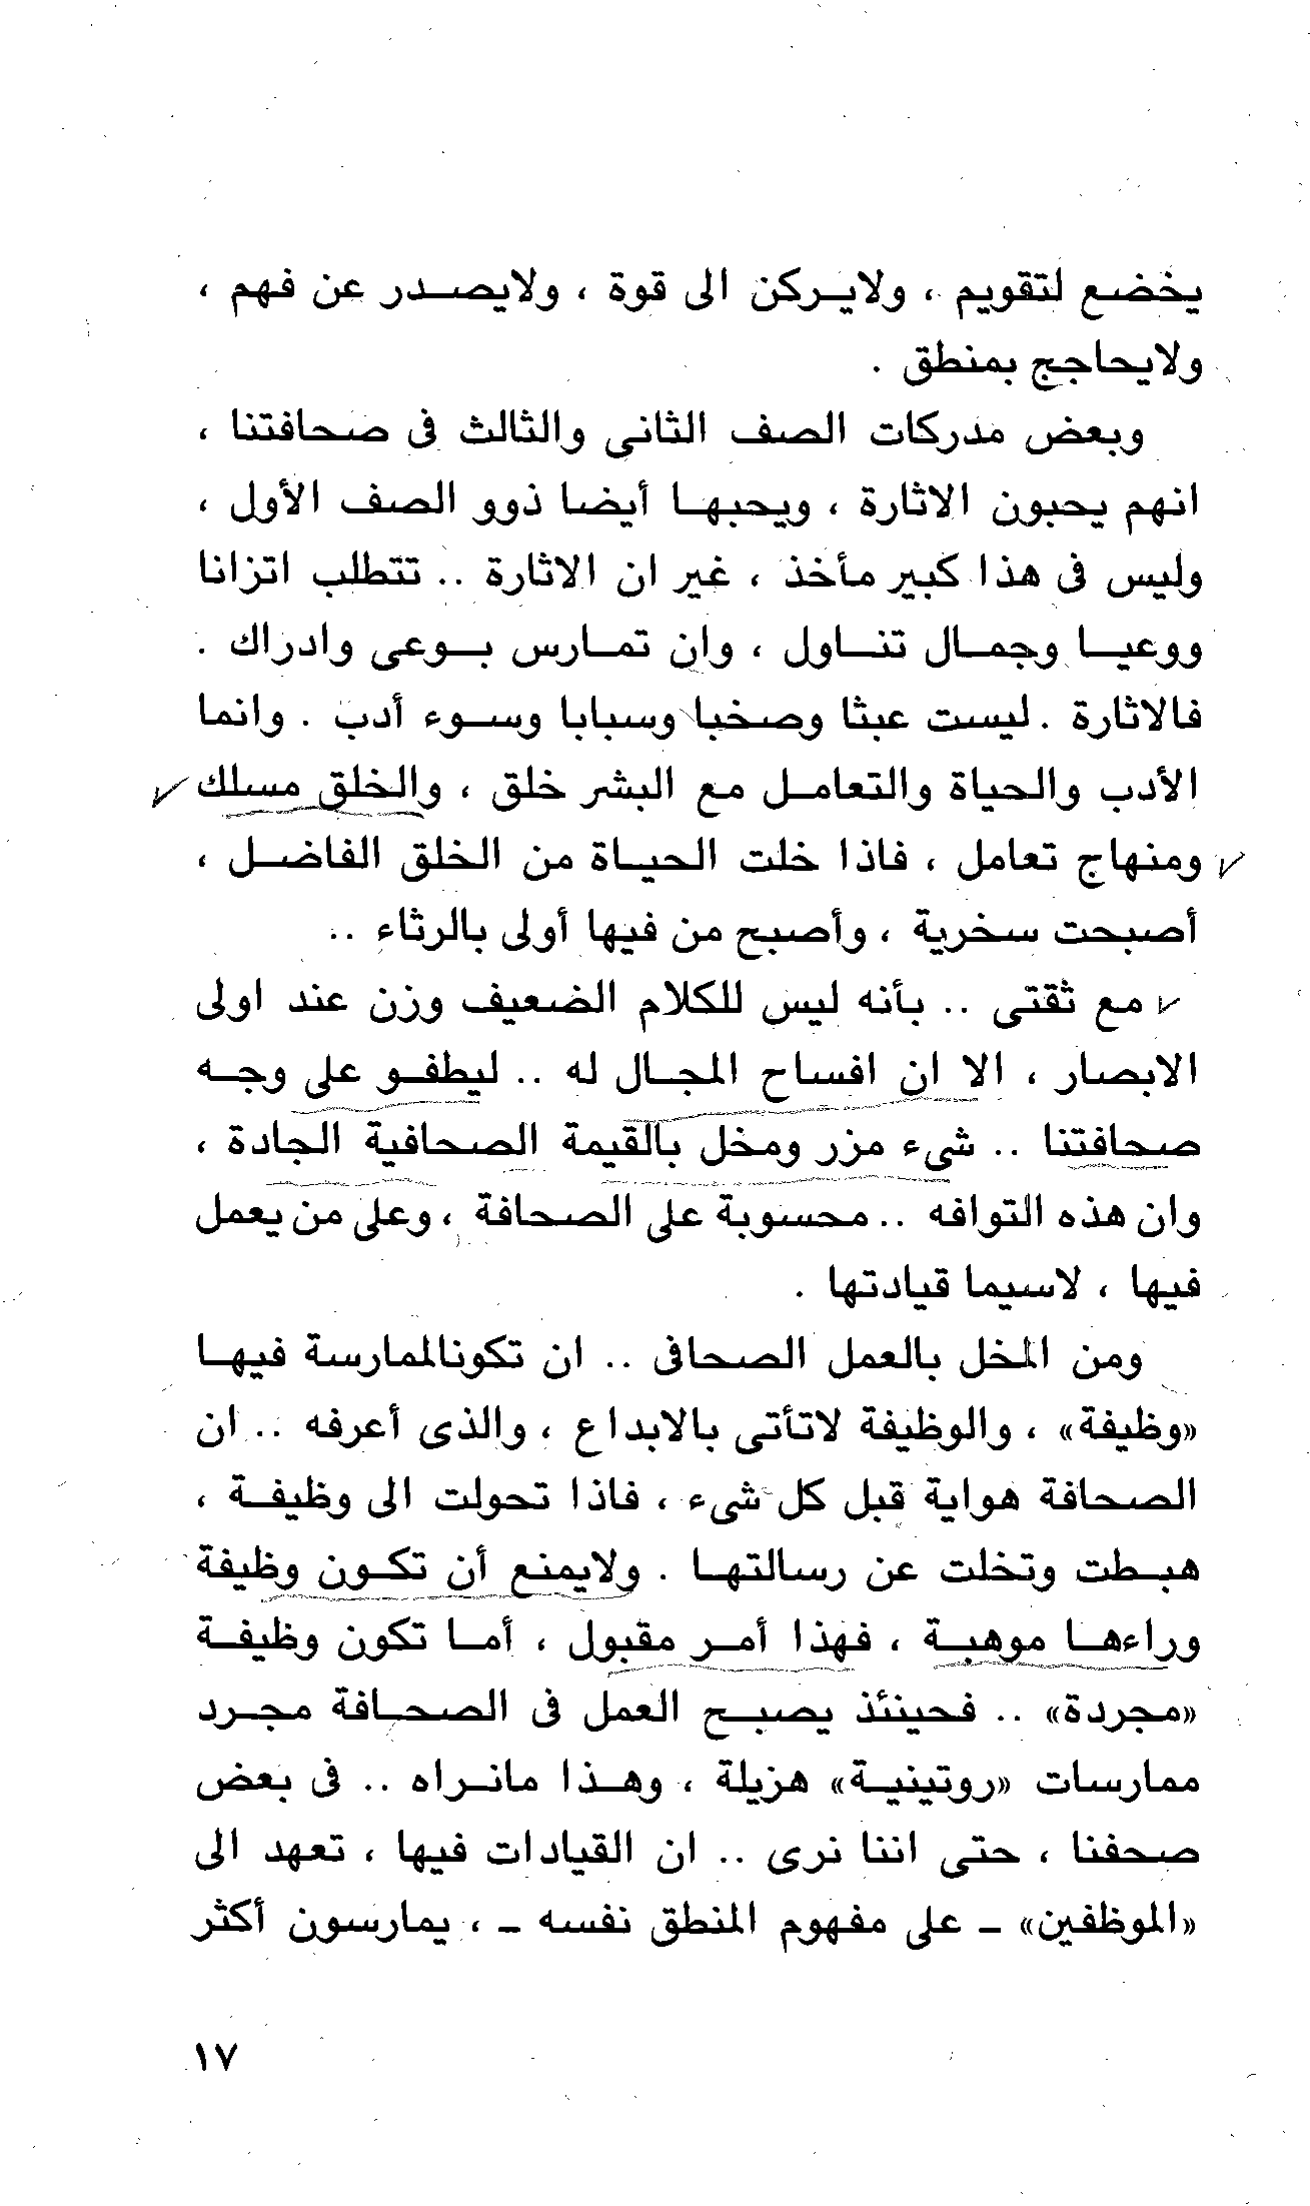 يخضع لتقويم ، ولايركن الى قوة ، ولايصدر عن فهم ،
ولايحاجج بمنطق .
وبعض مدركات الصف الثانى والثالث فى صحافتنا ،
انهم يحبون الاثارة ، ويحبها أيضا ذوو الصف الأول ،
وليس فى هذا كبير مأخذ ، غير ان الاثارة .. تتطلب اتزانا
ووعيا وجمال تناول ، وان تمارس بوعى وادراك .
فالاثارة . ليست عبثا وصخبا وسبابا وسوء أدب . وانما
الأدب والحياة والتعامل مع البشر خلق ، والخلق مسلك
ومنهاج تعامل ، فاذا خلت الحياة من الخلق الفاضل ،
أصبحت سخرية ، وأصبح من فيها أولى بالرثاء ..
مع ثقتى .. بأنه ليس للكلام الضعيف وزن عند اولى
الابصار ، الا ان افساح المجال له .. ليطفو على وجه
صحافتنا .. شىء مزر ومخل بالقيمة الصحافية الجادة ،
وان هذه التوافه .. محسوبة على الصحافة ، وعلى من يعمل
فيها ، لاسيما قيادتها .
ومن المخل بالعمل الصحافى .. ان تكونالممارسة فيها
«وظيفة» ، والوظيفة لاتأتى بالابداع ، والذى أعرفه .. ان
الصحافة هواية قبل كل شىء ، فاذا تحولت الى وظيفة ،
هبطت وتخلت عن رسالتها . ولايمنع أن تكون وظيفة
وراءها موهبة ، فهذا أمر مقبول ، أما تكون وظيفة
«مجردة» .. فحينئذ يصبح العمل فى الصحافة مجرد
ممارسات «روتينية» هزيلة ، وهذا مانراه .. فى بعض
صحفنا ، حتى اننا نرى .. ان القيادات فيها ، تعهد الى
«الموظفين» - على مفهوم المنطق نفسه - ، يمارسون أكثر
١٧